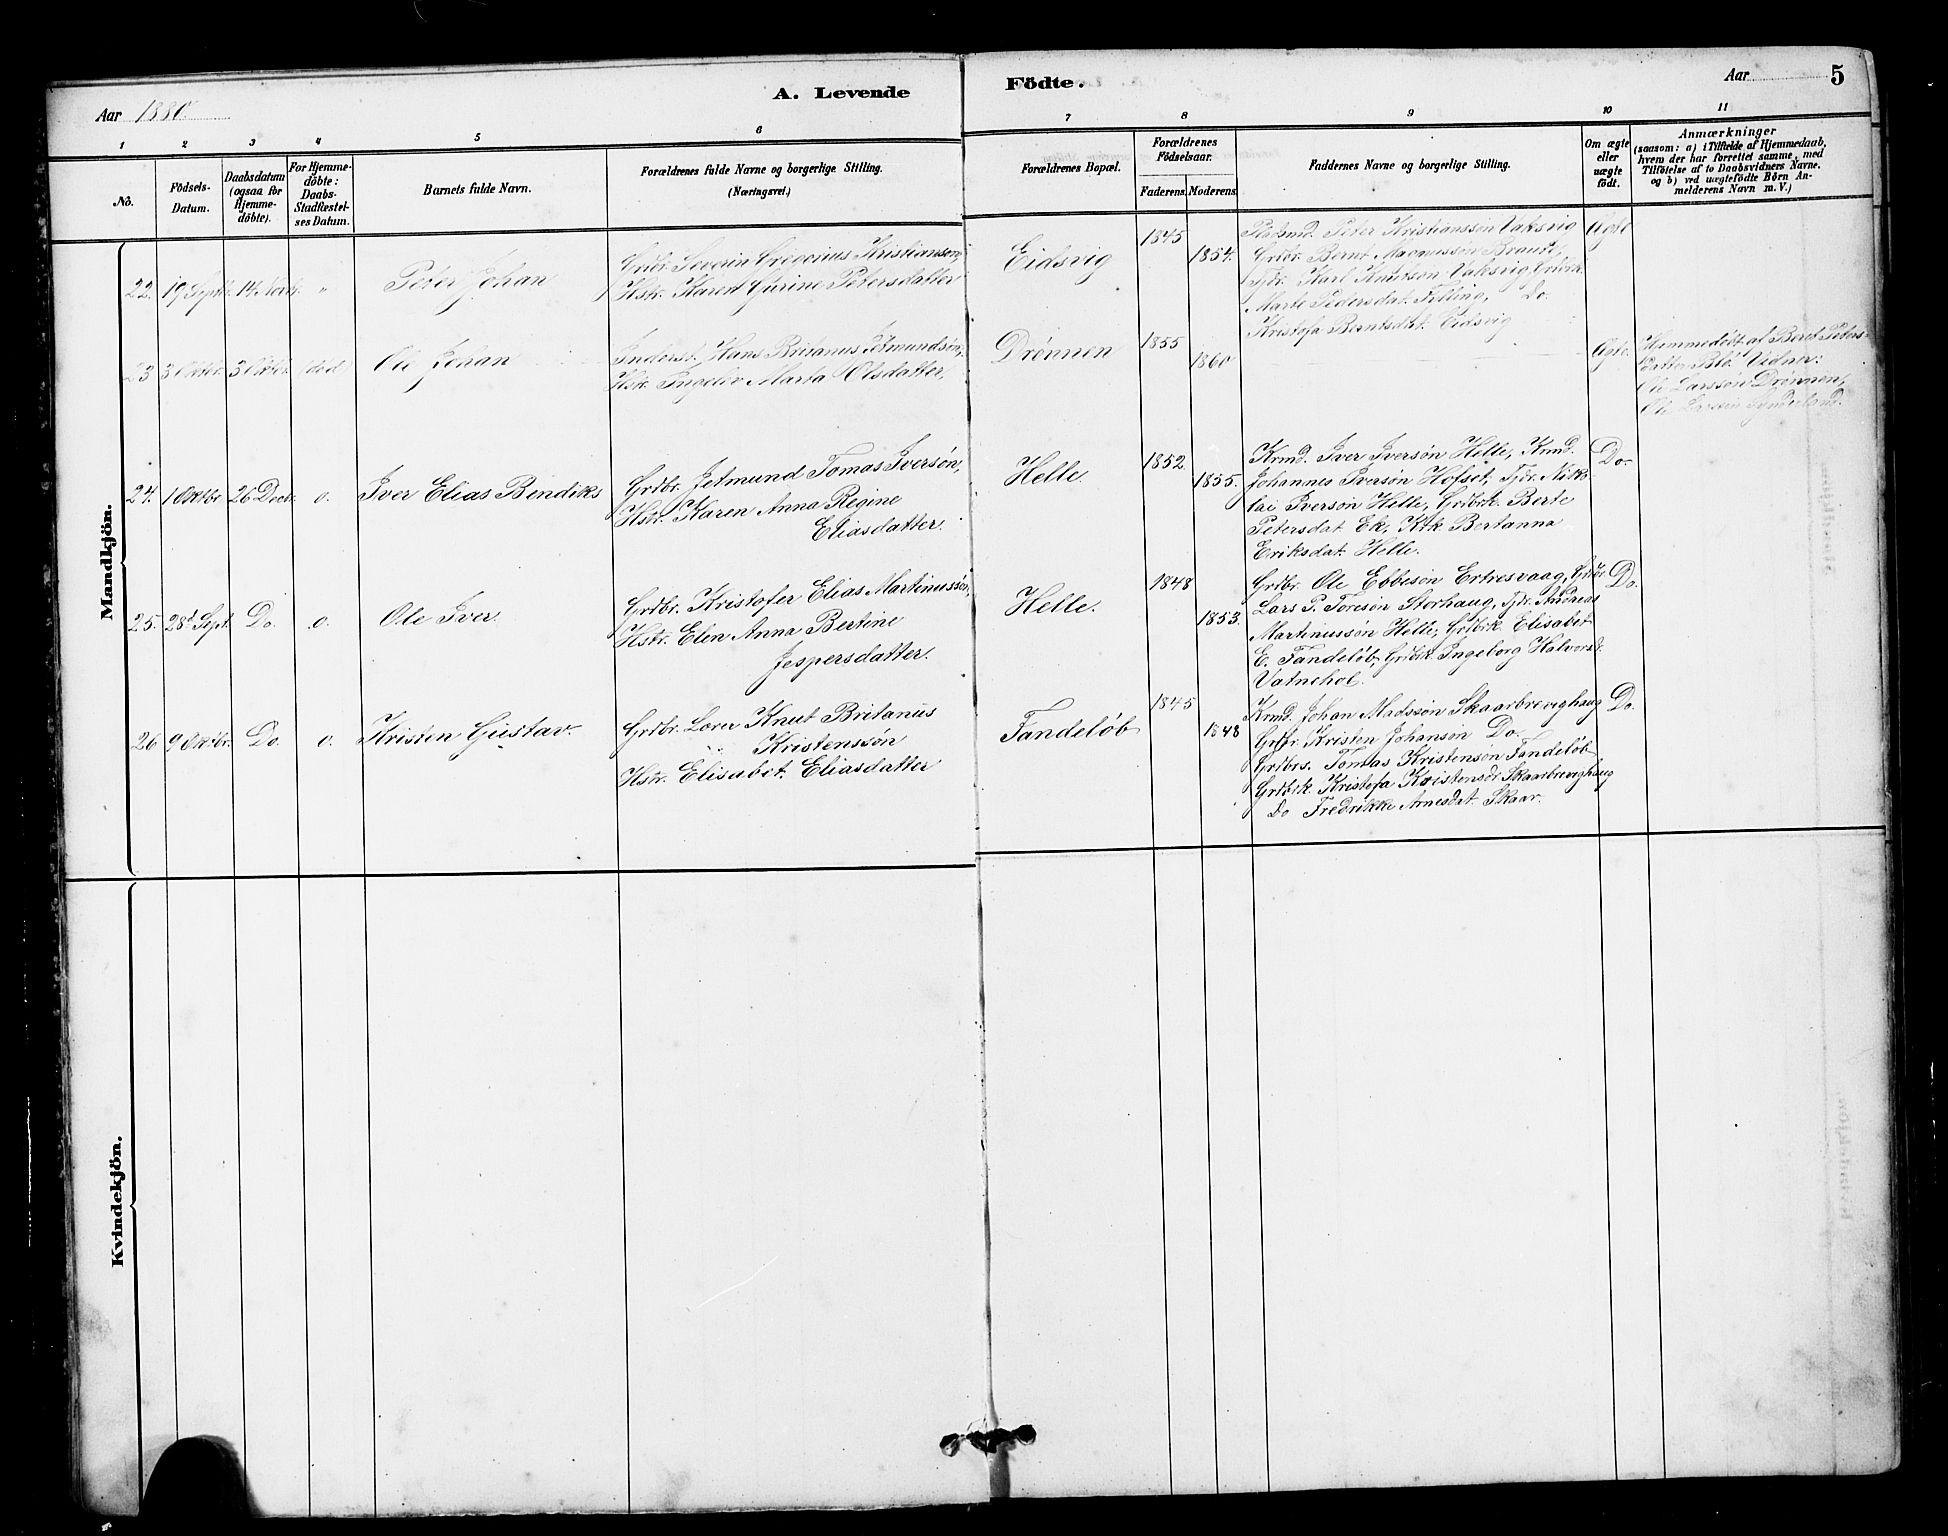 Aar 1880.
A. Levende
Födte.
Aar
5
1
2
3
4
5
6
7
8
9
10
11
No.
Födsels-
Datum.
Daabsdatum
(ogsaa for
Hjemme-
döbte).
For Hjemme-
döbte:
Daabs-
Stadfæstel-
ses Datum.
Barnets fulde Navn.
Forældrenes fulde Navne og borgerlige Stilling.
(Næringsvei.)
Forældrenes Bopæl.
Forældrenes
Födselsaar.
Faderens.
Moderens.
Faddernes Navne og borgerlige Stilling.
Om ægte
eller
uægte
födt.
Anmærkninger
(saasom: a) i Tilfælde af Hjemmedaab,
hvem der har forrettet samme, med
Tilföielse af to Daabsvidners Navne.
og b) ved uægtefödte Börn An-
melderens Navn m. V.)
Mandkjön.
22. 19 Septb. 14 Novb. " Peter Johan
Grdbr. Severin Gregorius Kristianssøn,
Hstr. Karen Gurine Petersdatter
Eidsvig
1845
1854.
Pladsmd. Peter Kristianssøn Vaksvig
Grdbr. Bernt Magnussøn Braute,
Tjdr. Karl Knutsøn Vaksvig, Grdbrk.
Marte Pedersdat. Filling, Do.
Kristofa Berntsdat. Eidsvig
Ægte
23 3 Oktbr. 3 Oktbr. død Ole Johan
Inderst. Hans Britanus Jetmundsøn,
Hstr. Ingeliv Marta Olsdatter,
Drønnen
1855
1860
Ægte.
Hjemmedøbt af Berit Peters-
datter Blø. Vidner:
Ole Larssøn Drønnen,
Ole Larssøn
24. 1 Oktbr 26 Decb. o. Iver Elias Bendiks
Grdbr. Jetmund Tomas Iversøn,
Hstr. Karen Anna Regine
Eliasdatter.
Helle.
1852
1855.
Krmd. Iver Iversøn Helle, Krmd.
Johannes Iversøn Hofset, Tjdr. Niko-
lai Iversøn Helle, Grdbrk. Berte
Petersdat Ek, Ktk Bertanna
Eriksdat. Helle.
Do.
25. 28d Sept. Do. o. Ole Iver.
Grdbr. Kristofer Elias Martinussøn,
Hstr. Elen Anna Bertine
Jespersdatter.
Helle.
1848
1853.
Grdbr. Ole Ebbesøn Ertresvaag, Grdbr
Lars P. Toresøn Storhaug, Tjdr. Andreas
Martinussøn Helle, Grdbrk. Elisabet
E. Fandeløb, Grdbrk. Ingeborg Halvorsd.
Vatnehol.
Do.
26 9 Oktbr. Do. o. Kristen Gustav.
Grdbr. Lærer Knut Britanius
Kristenssøn
Hstr. Elisabet Eliasdatter
Fandeløb
1845
1848
Krmd. Johan Madssøn Skaarbrevighaug
Grdbr. Kristen Johansøn Do.
Grdbrs. Tomas Kristensøn Fandeløb
Grdbrk. Kristofa Kristensdr. Skaarbrevighaug
Do Fredrikke Arnesdat. Skaar.
Do.
Kvindekjön.